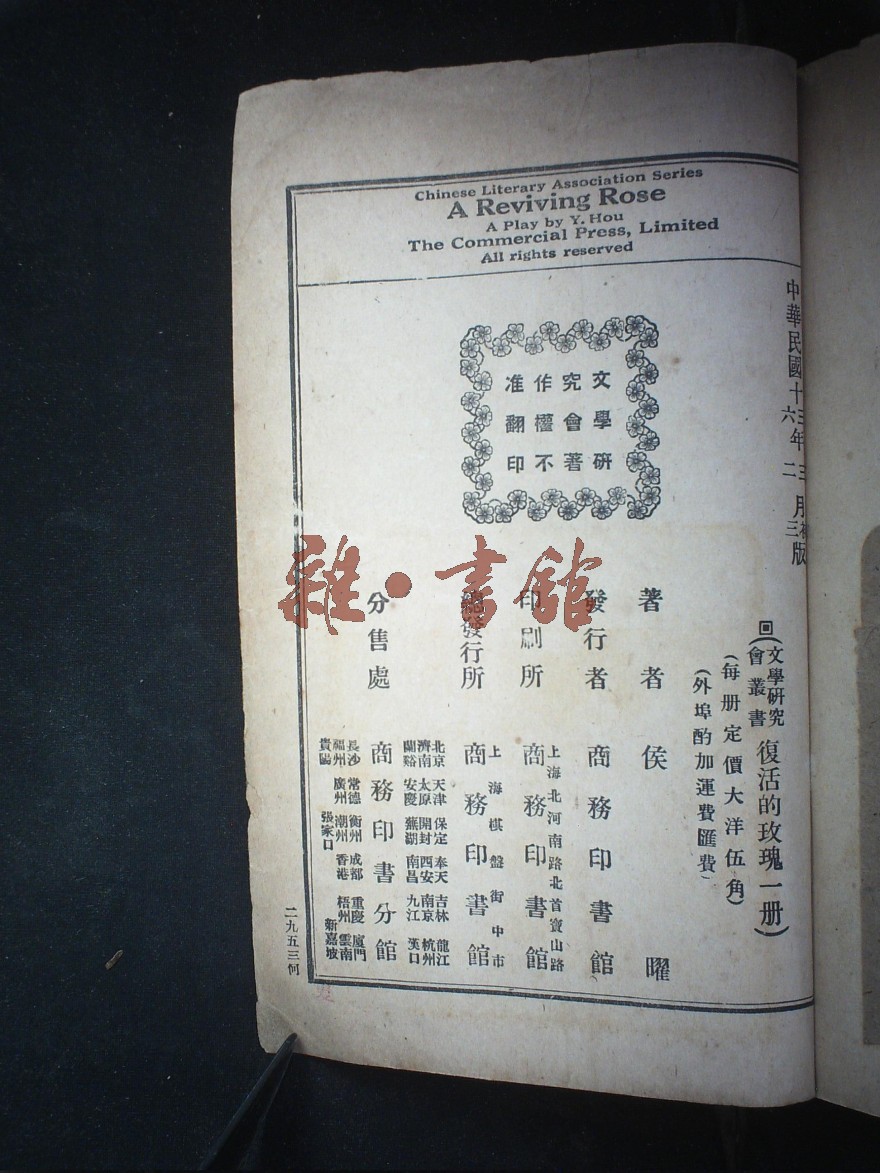 Chinese Literary Association Series
A Reviving Rose
A Play by Y. Hou
The Commercial Press, Limited
All rights reserved
中華民國十三年三月初版
六 二 三
文學研
究會著
作權不
准翻印
回(文學研究
會叢書 復活的玫瑰一册)
(每册定價大洋伍角)
(外埠酌加運費匯費)
著者 侯曜
發行者 商務印書館
印刷所 上海北河南路北首寶山路 商務印書館
總發行所 上海棋盤街中市 商務印書館
分售處 商務印書分館
北京 天津 保定 奉天 吉林 龍江
濟南 太原 開封 西安 南京 杭州
蘭谿 安慶 蕪湖 南昌 九江 漢口
長沙 常德 衡州 成都 重慶 廈門
福州 廣州 潮州 香港 梧州 雲南
貴陽 張家口 新嘉坡
二九五三何
雜·書館